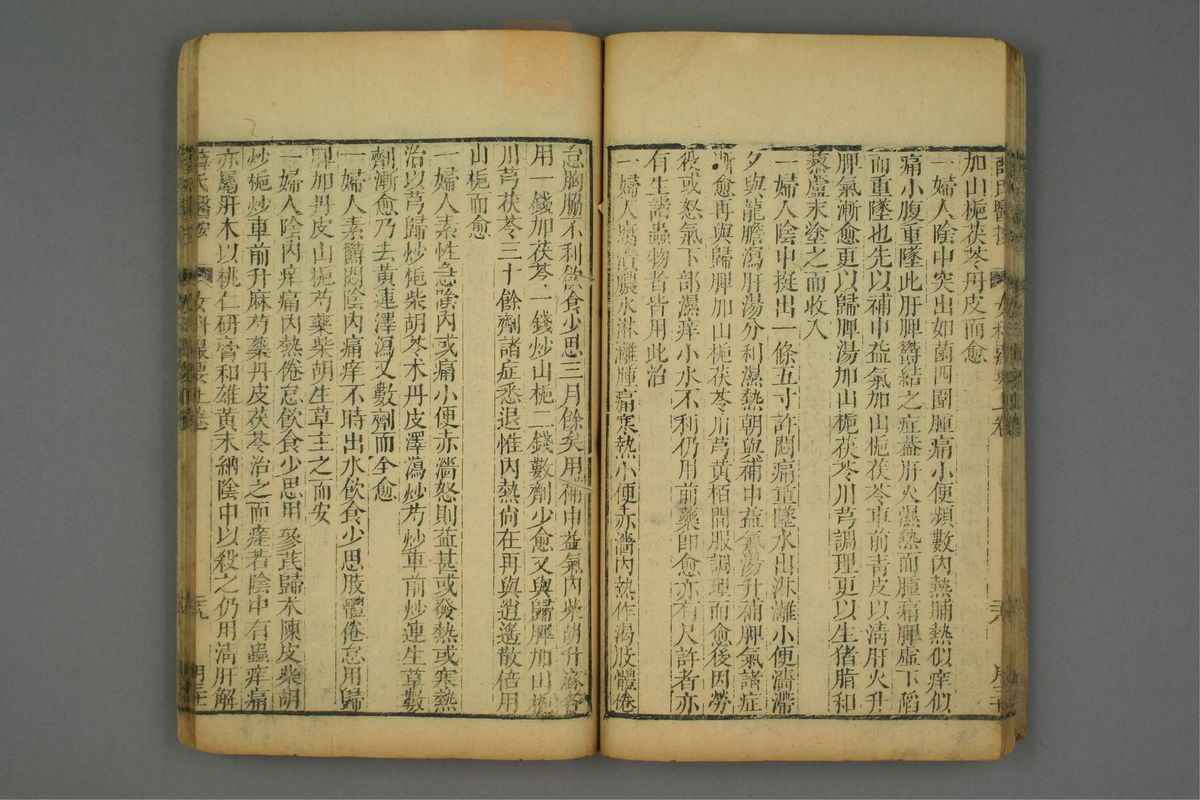 加山梔茯苓丹皮而愈
一婦人陰中突出如菌四圍腫痛小便頻數內熱晡熱似痒似
痛小腹重墜此肝脾鬱結之症葢肝火濕熱而腫痛脾虛下陷
而重墜也先以補中益氣加山梔茯苓車前青皮以清肝火升
脾氣漸愈更以歸脾湯加山梔茯苓川芎調理更以生猪脂和
藜蘆末塗之而收入
一婦人陰中挺出一條五寸許悶痛重墜水出淋漓小便濇滯
夕與龍膽瀉肝湯分利濕熱朝與補中益氣湯升補脾氣諸症
漸愈再與歸脾加山梔茯苓川芎黃栢間服調理而愈後因勞
役或怒氣下部濕痒小水不利仍用前藥即愈亦有尺許者亦
有生諸蟲物者皆用此治
一婦人腐潰膿水淋漓腫痛寒熱小便赤濇內熱作渴肢體倦
怠胸脇不利飲食少思三月餘矣用補中益氣內柴胡升麻各
用一錢加茯苓一錢炒山梔二錢數劑少愈又與歸脾加山梔
川芎茯苓三十餘劑諸症悉退惟內熱尚在再與逍遙散倍用
山梔而愈
一婦人素性急陰內或痛小便亦濇怒則益甚或發熱或寒熱
治以芎歸炒梔柴胡苓术丹皮澤瀉炒芍炒車前炒連生草數
劑漸愈乃去黃連澤瀉又數劑而全愈
一婦人素鬱悶陰內痛痒不時出水飲食少思肢體倦怠用歸
脾加丹皮山梔芍藥柴胡生草主之而安
一婦人陰內痒痛內熱倦怠飲食少思用參芪歸术陳皮柴胡
炒梔炒車前升麻芍藥丹皮茯苓治之而瘥若陰中有蟲痒痛
亦屬肝木以桃仁研膏和雄黃末納陰中以殺之仍用清肝解
薛氏醫案